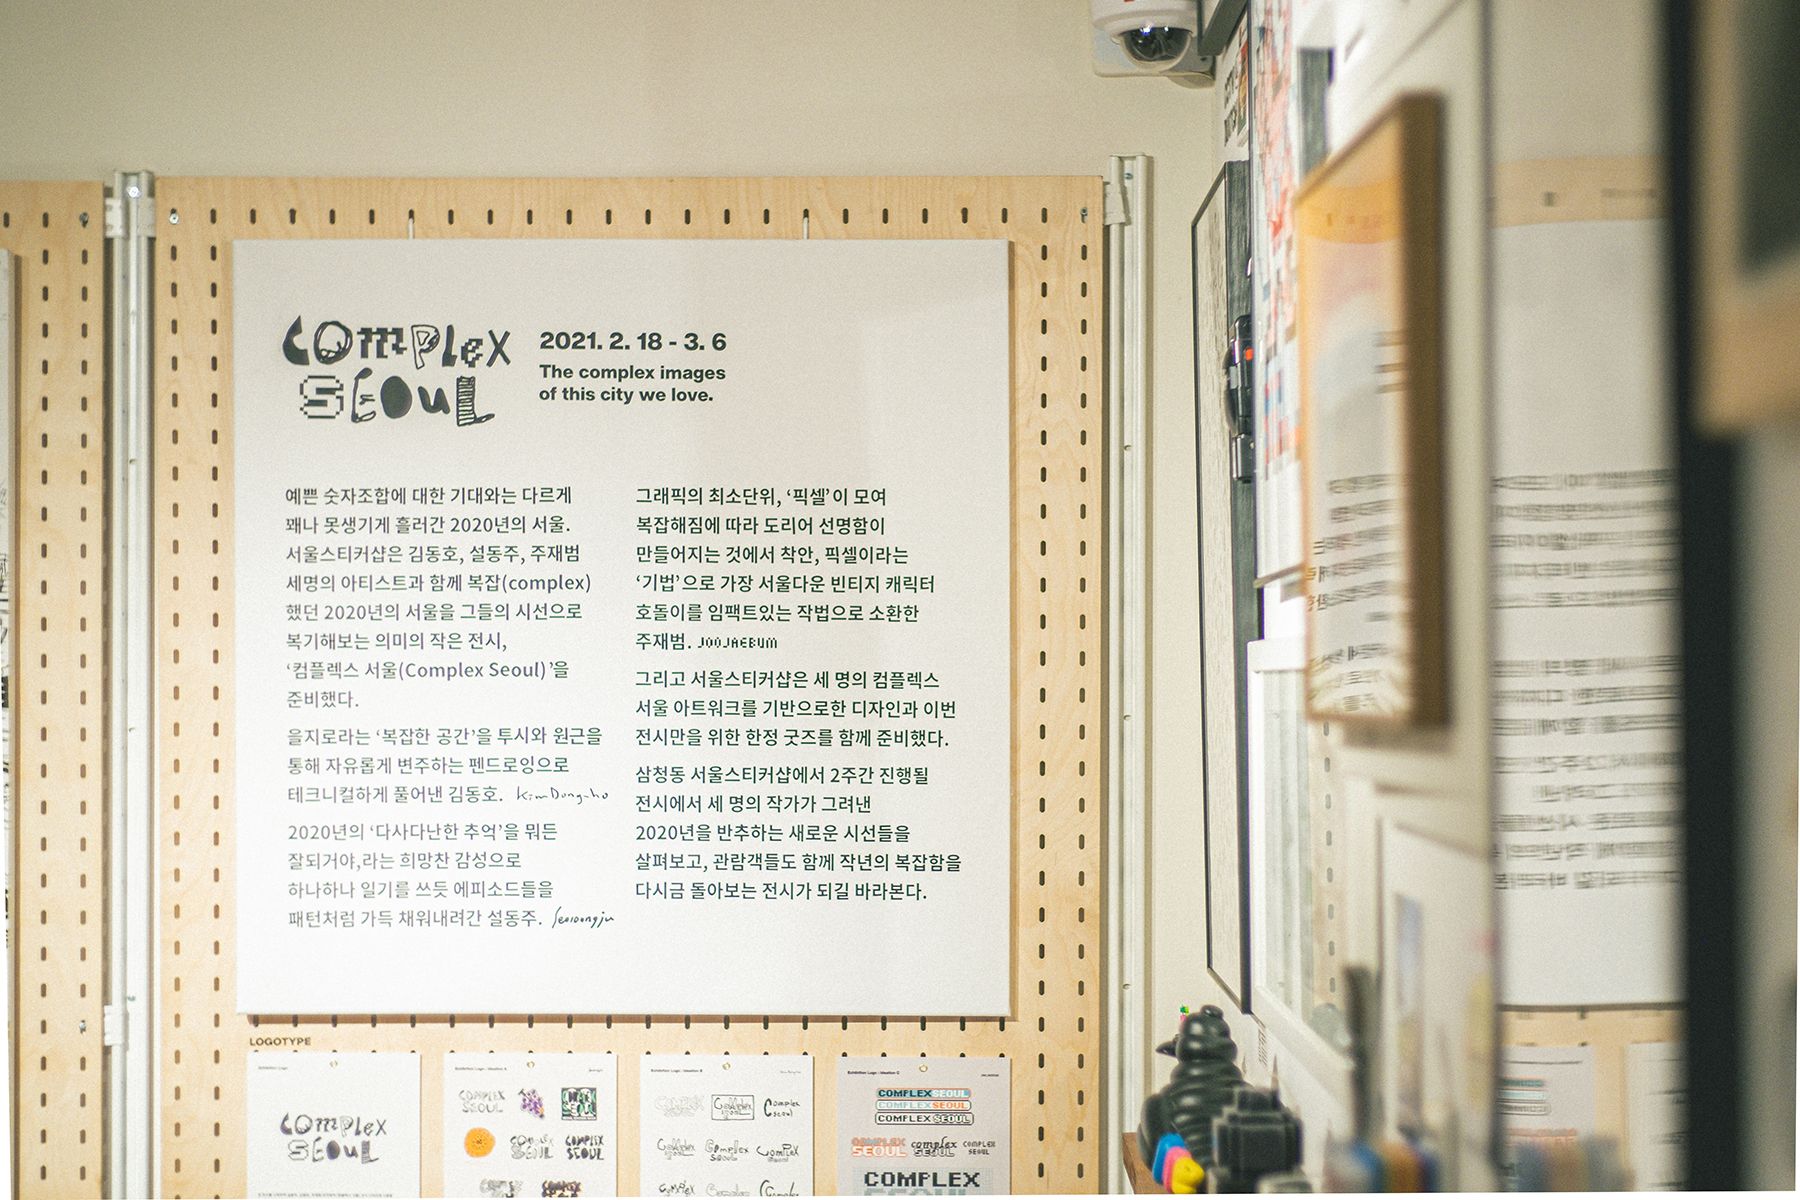 COMPLEX
SEOUL
2021. 2. 18 - 3. 6
The complex images
of this city we love.
예쁜 숫자조합에 대한 기대와는 다르게
꽤나 못생기게 흘러간 2020년의 서울.
서울스티커샵은 김동호, 설동주, 주재범
세명의 아티스트와 함께 복잡(complex)
했던 2020년의 서울을 그들의 시선으로
복기해보는 의미의 작은 전시,
‘컴플렉스 서울(Complex Seoul)’을
준비했다.
을지로라는 ‘복잡한 공간’을 투시와 원근을
통해 자유롭게 변주하는 펜드로잉으로
테크니컬하게 풀어낸 김동호. KimDong-ho
2020년의 ‘다사다난한 추억’을 뭐든
잘되거야,라는 희망찬 감성으로
하나하나 일기를 쓰듯 에피소드들을
패턴처럼 가득 채워내려간 설동주. Seoldongju
그래픽의 최소단위, ‘픽셀’이 모여
복잡해짐에 따라 도리어 선명함이
만들어지는 것에서 착안, 픽셀이라는
‘기법’으로 가장 서울다운 빈티지 캐릭터
호돌이를 임팩트있는 작법으로 소환한
주재범. JOOJAEBUM
그리고 서울스티커샵은 세 명의 컴플렉스
서울 아트워크를 기반으로한 디자인과 이번
전시만을 위한 한정 굿즈를 함께 준비했다.
삼청동 서울스티커샵에서 2주간 진행될
전시에서 세 명의 작가가 그려낸
2020년을 반추하는 새로운 시선들을
살펴보고, 관람객들도 함께 작년의 복잡함을
다시금 돌아보는 전시가 되길 바라본다.
LOGOTYPE
Exhibition Logo
COMPLEX
SEOUL
Exhibition Logo / Ideation A
COMPLEX
SEOUL
COMPLEX
SEOUL
COMPLEX
SEOUL
Exhibition Logo / Ideation B
Complex
seoul
Complex
Seoul
Exhibition Logo / Ideation C
COMPLEX SEOUL
COMPLEX SEOUL
COMPLEX SEOUL
COMPLEX
SEOUL
complex
SEOUL
COMPLEX
SEOUL
COMPLEX
SEOUL